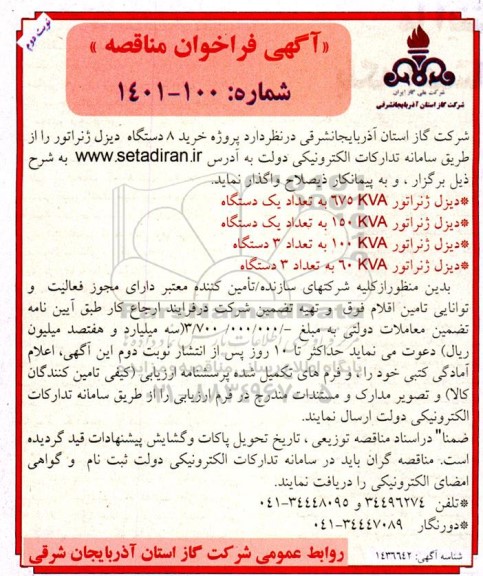 نوبت دوم
«آگهی فراخوان مناقصه»
شماره: ۱۰۰-۱۴۰۱
شرکت ملی گاز ایران
شرکت گاز استان آذربایجانشرقی
شرکت گاز استان آذربایجانشرقی درنظردارد پروژه خرید ۸ دستگاه دیزل ژنراتور را از
طریق سامانه تدارکات الکترونیکی دولت به آدرس www.setadiran.ir به شرح
ذیل برگزار ، و به پیمانکار ذیصلاح واگذار نماید.
*دیزل ژنراتور ۶۷۵ KVA به تعداد یک دستگاه
*دیزل ژنراتور ۱۵۰ KVA به تعداد یک دستگاه
*دیزل ژنراتور ۱۰۰ KVA به تعداد ۳ دستگاه
*دیزل ژنراتور ۶۰ KVA به تعداد ۳ دستگاه
بدین منظورازکلیه شرکتهای سازنده/تأمین کننده معتبر دارای مجوز فعالیت و
توانایی تامین اقلام فوق و تهیه تضمین شرکت درفرایند ارجاع کار طبق آیین نامه
تضمین معاملات دولتی به مبلغ -/۳/۷۰۰/۰۰۰/۰۰۰(سه میلیارد و هفتصد میلیون
ریال) دعوت می نماید حداکثر تا ۱۰ روز پس از انتشار نوبت دوم این آگهی، اعلام
آمادگی کتبی خود را ، و فرم های تکمیل شده پرسشنامه ارزیابی (کیفی تامین کنندگان
کالا) و تصویر مدارک و مستندات مندرج در فرم ارزیابی را از طریق سامانه تدارکات
الکترونیکی دولت ارسال نمایند.
ضمنا" دراسناد مناقصه توزیعی ، تاریخ تحویل پاکات وگشایش پیشنهادات قید گردیده
است. مناقصه گران باید در سامانه تدارکات الکترونیکی دولت ثبت نام و گواهی
امضای الکترونیکی را دریافت نمایند.
*تلفن ۳۴۴۹۶۲۷۴ و ۳۴۴۴۸۰۹۵-۰۴۱
*دورنگار ۳۴۴۴۷۰۸۹-۰۴۱
شناسه آگهی: ۱۴۳۶۶۴۲
روابط عمومی شرکت گاز استان آذربایجان شرقی